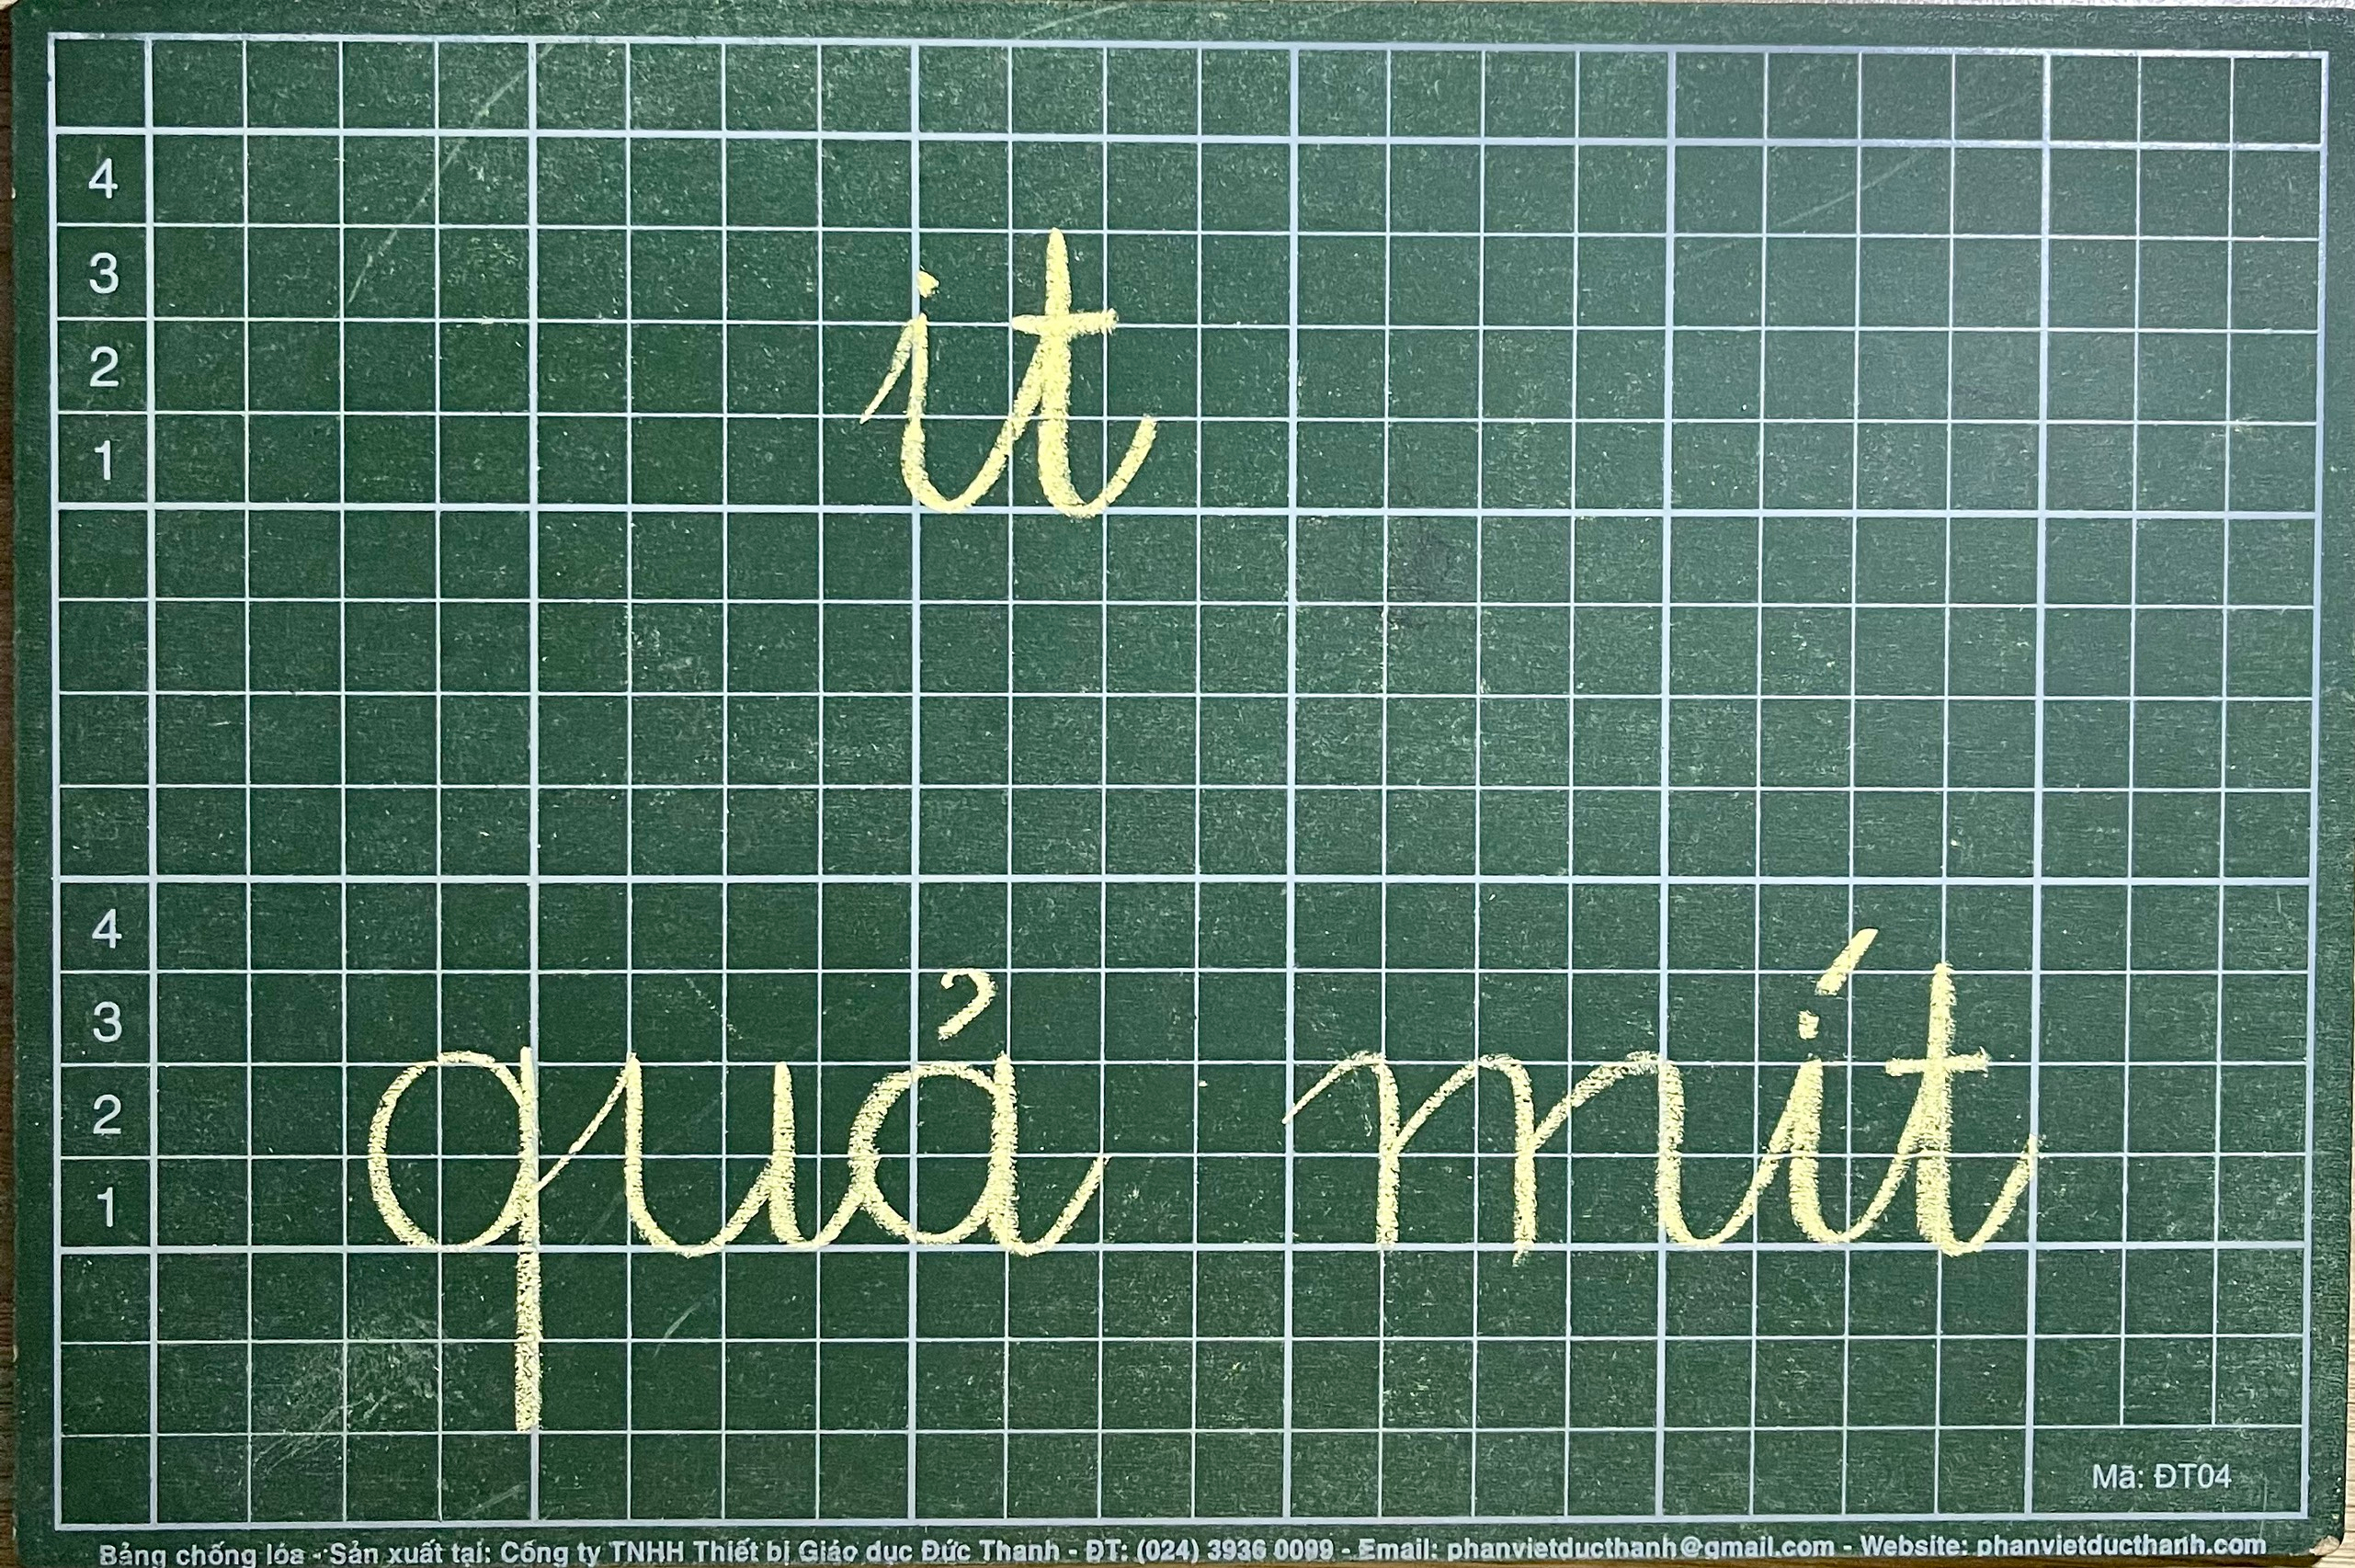 4
3
2
1
it
4
3
2
1
quả mít
Mã: ĐT04
Bảng chống lóa - Sản xuất tại: Công ty TNHH Thiết bị Giáo dục Đức Thanh - ĐT: (024) 3936 0099 - Email: phanvietducthanh@gmail.com - Website: phanvietducthanh.com